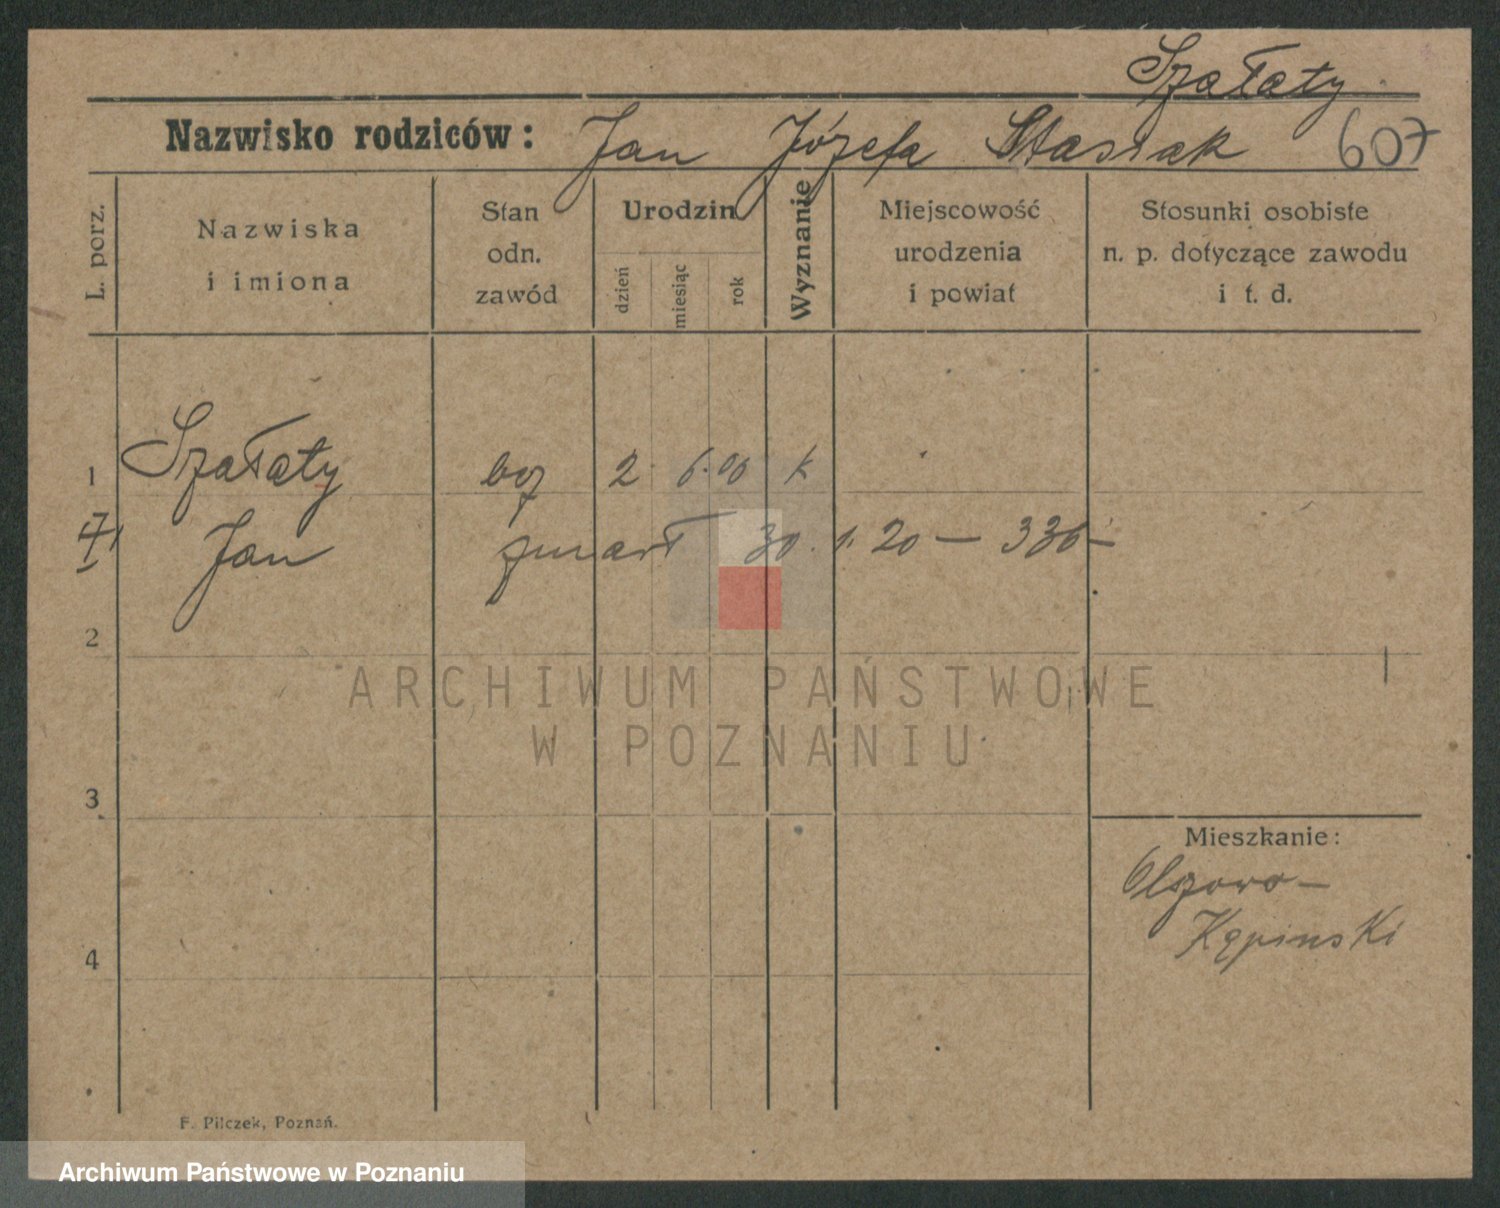 Szałaty
Nazwisko rodziców: Jan Józefa Stasiak 607
L. porz.
Nazwiska
i imiona
Stan
odn.
zawód
Urodzin
dzień
miesiąc
rok
Wyznanie
Miejscowość
urodzenia
i powiat
Stosunki osobiste
n. p. dotyczące zawodu
i t. d.
1 Szałaty 2 6. 06 k
Jan zmarł 30. 1. 20 — 336 —
2
3
4
Mieszkanie:
Olszowo —
Kępinski
F. Pilczek, Poznań.
ARCHIWUM PAŃSTWOWE
W POZNANIU
Archiwum Państwowe w Poznaniu